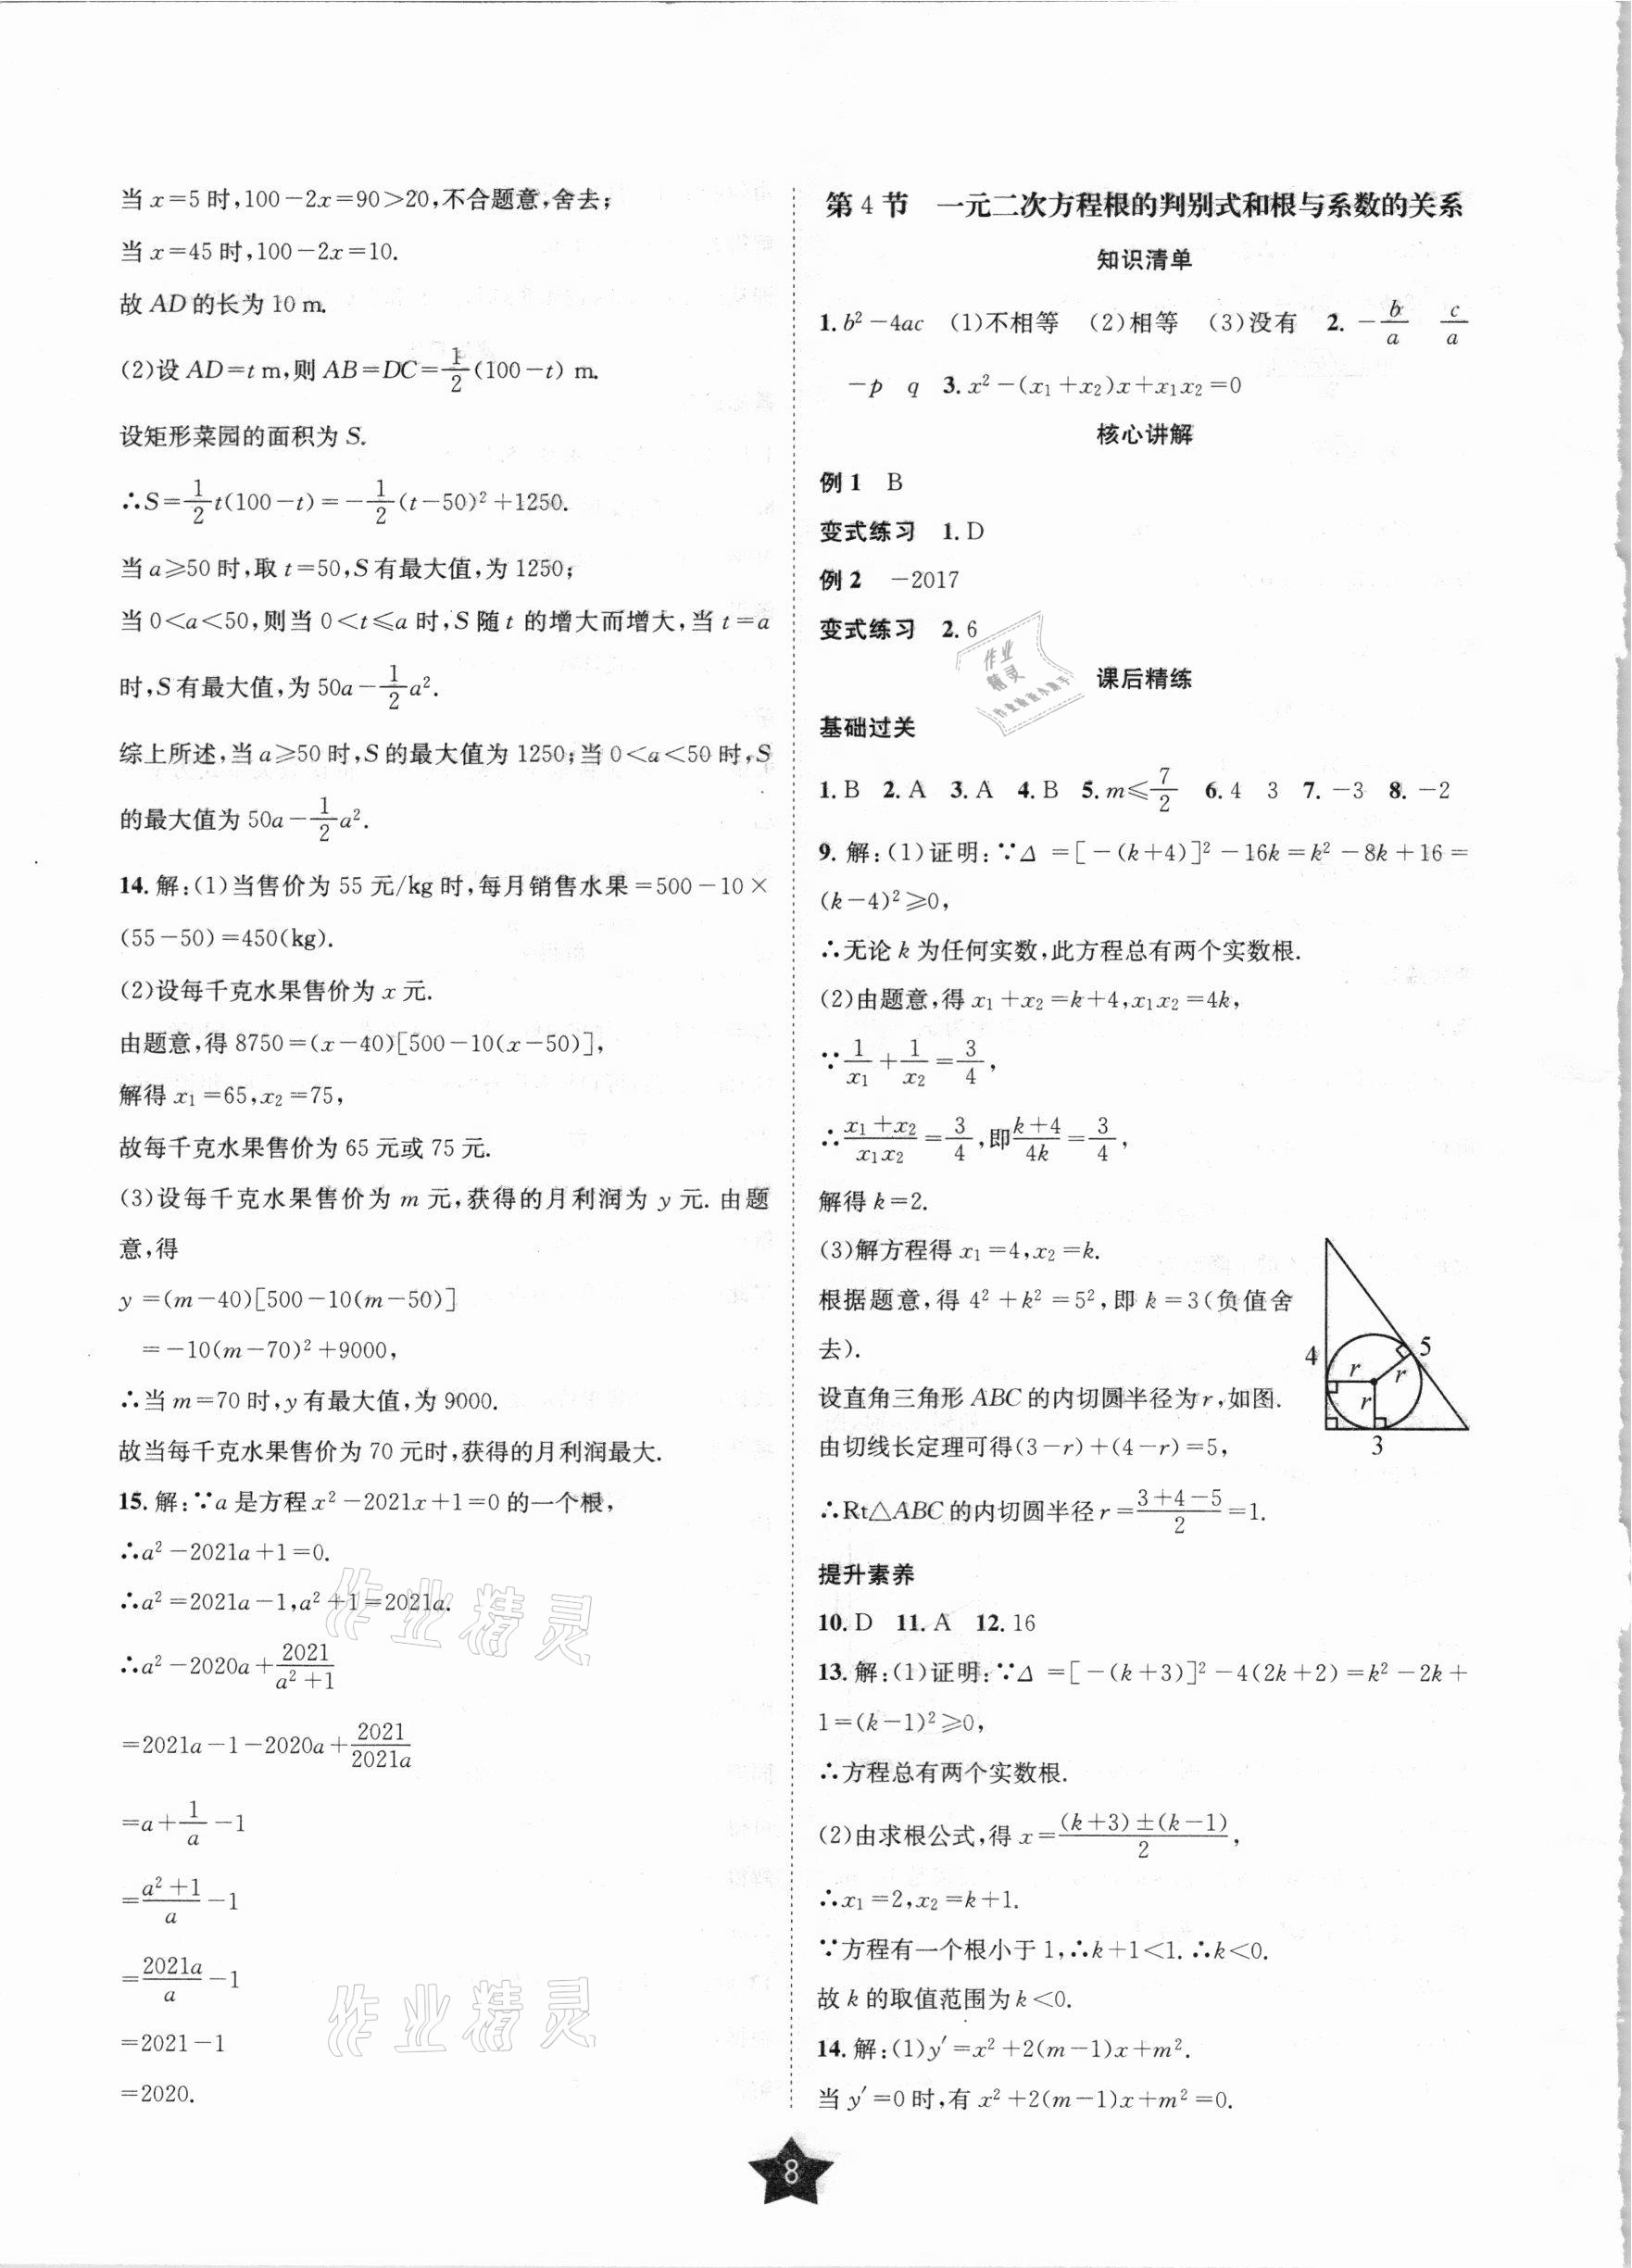 当 x=5 时,100-2x=90>20,不合题意,舍去;
当 x=45 时,100-2x=10.
故 AD 的长为 10 m.
(2)设 AD=t m,则 AB=DC=\frac{1}{2}(100-t) m.
设矩形菜园的面积为 S.
∴S=\frac{1}{2}t(100-t)=-\frac{1}{2}(t-50)²+1250.
当 a≥50 时,取 t=50,S 有最大值,为 1250;
当 0<a<50,则当 0<t≤a 时,S 随 t 的增大而增大,当 t=a
时,S 有最大值,为 50a-\frac{1}{2}a².
综上所述,当 a≥50 时,S 的最大值为 1250;当 0<a<50 时,S
的最大值为 50a-\frac{1}{2}a².
14. 解:(1)当售价为 55 元/kg 时,每月销售水果=500-10×
(55-50)=450(kg).
(2)设每千克水果售价为 x 元.
由题意,得 8750=(x-40)[500-10(x-50)],
解得 x₁=65,x₂=75,
故每千克水果售价为 65 元或 75 元.
(3)设每千克水果售价为 m 元,获得的月利润为 y 元. 由题
意,得
y =(m-40)[500-10(m-50)]
=-10(m-70)²+9000,
∴当 m=70 时,y 有最大值,为 9000.
故当每千克水果售价为 70 元时,获得的月利润最大.
15. 解:∵a 是方程 x²-2021x+1=0 的一个根,
∴a²-2021a+1=0.
∴a²=2021a-1,a²+1=2021a.
∴a²-2020a+\frac{2021}{a²+1}
=2021a-1-2020a+\frac{2021}{2021a}
=a+\frac{1}{a}-1
=\frac{a²+1}{a}-1
=\frac{2021a}{a}-1
=2021-1
=2020.
第 4 节 一元二次方程根的判别式和根与系数的关系
知识清单
1. b²-4ac (1)不相等 (2)相等 (3)没有 2. -\frac{b}{a} \frac{c}{a}
-p q 3. x²-(x₁+x₂)x+x₁x₂=0
核心讲解
例 1 B
变式练习 1. D
例 2 -2017
变式练习 2. 6
课后精练
基础过关
1. B 2. A 3. A 4. B 5. m≤\frac{7}{2} 6. 4 3 7. -3 8. -2
9. 解:(1)证明:∵Δ=[-(k+4)]²-16k=k²-8k+16=
(k-4)²≥0,
∴无论 k 为任何实数,此方程总有两个实数根.
(2)由题意,得 x₁+x₂=k+4,x₁x₂=4k,
∵\frac{1}{x₁}+\frac{1}{x₂}=\frac{3}{4},
∴\frac{x₁+x₂}{x₁x₂}=\frac{3}{4},即\frac{k+4}{4k}=\frac{3}{4},
解得 k=2.
(3)解方程得 x₁=4,x₂=k.
根据题意,得 4²+k²=5²,即 k=3(负值舍
去).
设直角三角形 ABC 的内切圆半径为 r,如图.
由切线长定理可得(3-r)+(4-r)=5,
∴Rt△ABC 的内切圆半径 r=\frac{3+4-5}{2}=1.
4
5
r
r
r
3
提升素养
10. D 11. A 12. 16
13. 解:(1)证明:∵Δ=[-(k+3)]²-4(2k+2)=k²-2k+
1=(k-1)²≥0,
∴方程总有两个实数根.
(2)由求根公式,得 x=\frac{(k+3)±(k-1)}{2},
∴x₁=2,x₂=k+1.
∵方程有一个根小于 1,∴k+1<1. ∴k<0.
故 k 的取值范围为 k<0.
14. 解:(1)y′=x²+2(m-1)x+m².
当 y′=0 时,有 x²+2(m-1)x+m²=0.
8
作业精灵
作业精灵
作业
精灵